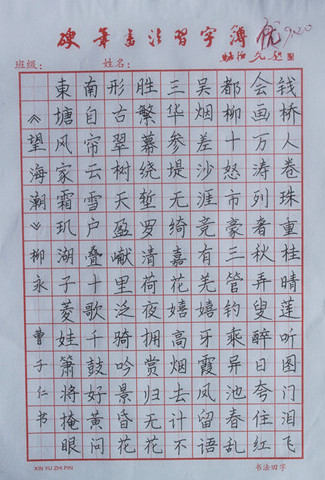 硬筆書法習字簿
优
9.20
班级： 姓名：
《望海潮》柳永 曹子仁书
東南形胜三吴都会钱
塘自古繁华烟柳画桥
风帘翠幕参差十万人
家云树绕堤沙怒涛卷
霜雪天堑无涯市列珠
玑户盈罗绮竞豪奢重
湖叠巘清嘉有三秋桂
子十里荷花羌管弄晴
菱歌泛夜嬉嬉钓叟莲
娃千骑拥高牙乘醉听
箫鼓吟赏烟霞异日图
将好景归去凤池夸门
掩黄昏无计留春住泪
眼问花花不语乱红飞
XIN YU ZHI PIN
书法田字